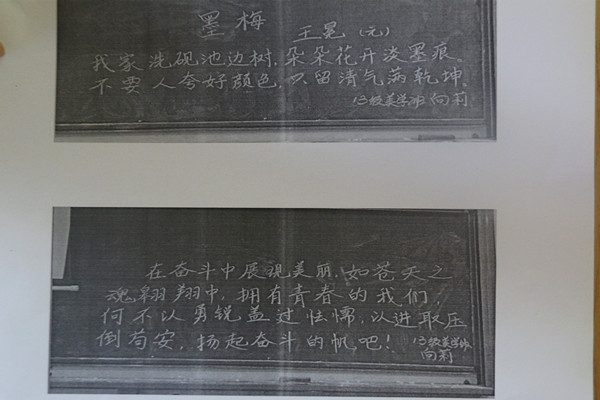 墨梅
王冕（元）
我家洗砚池边树,朵朵花开淡墨痕。
不要人夸好颜色,只留清气满乾坤。
13级美学班 向莉
在奋斗中展现美丽,如苍天之
魂翱翔中,拥有青春的我们,
何不以勇锐盖过怯懦,以进取压
倒苟安,扬起奋斗的帆吧!
13级美学班
向莉